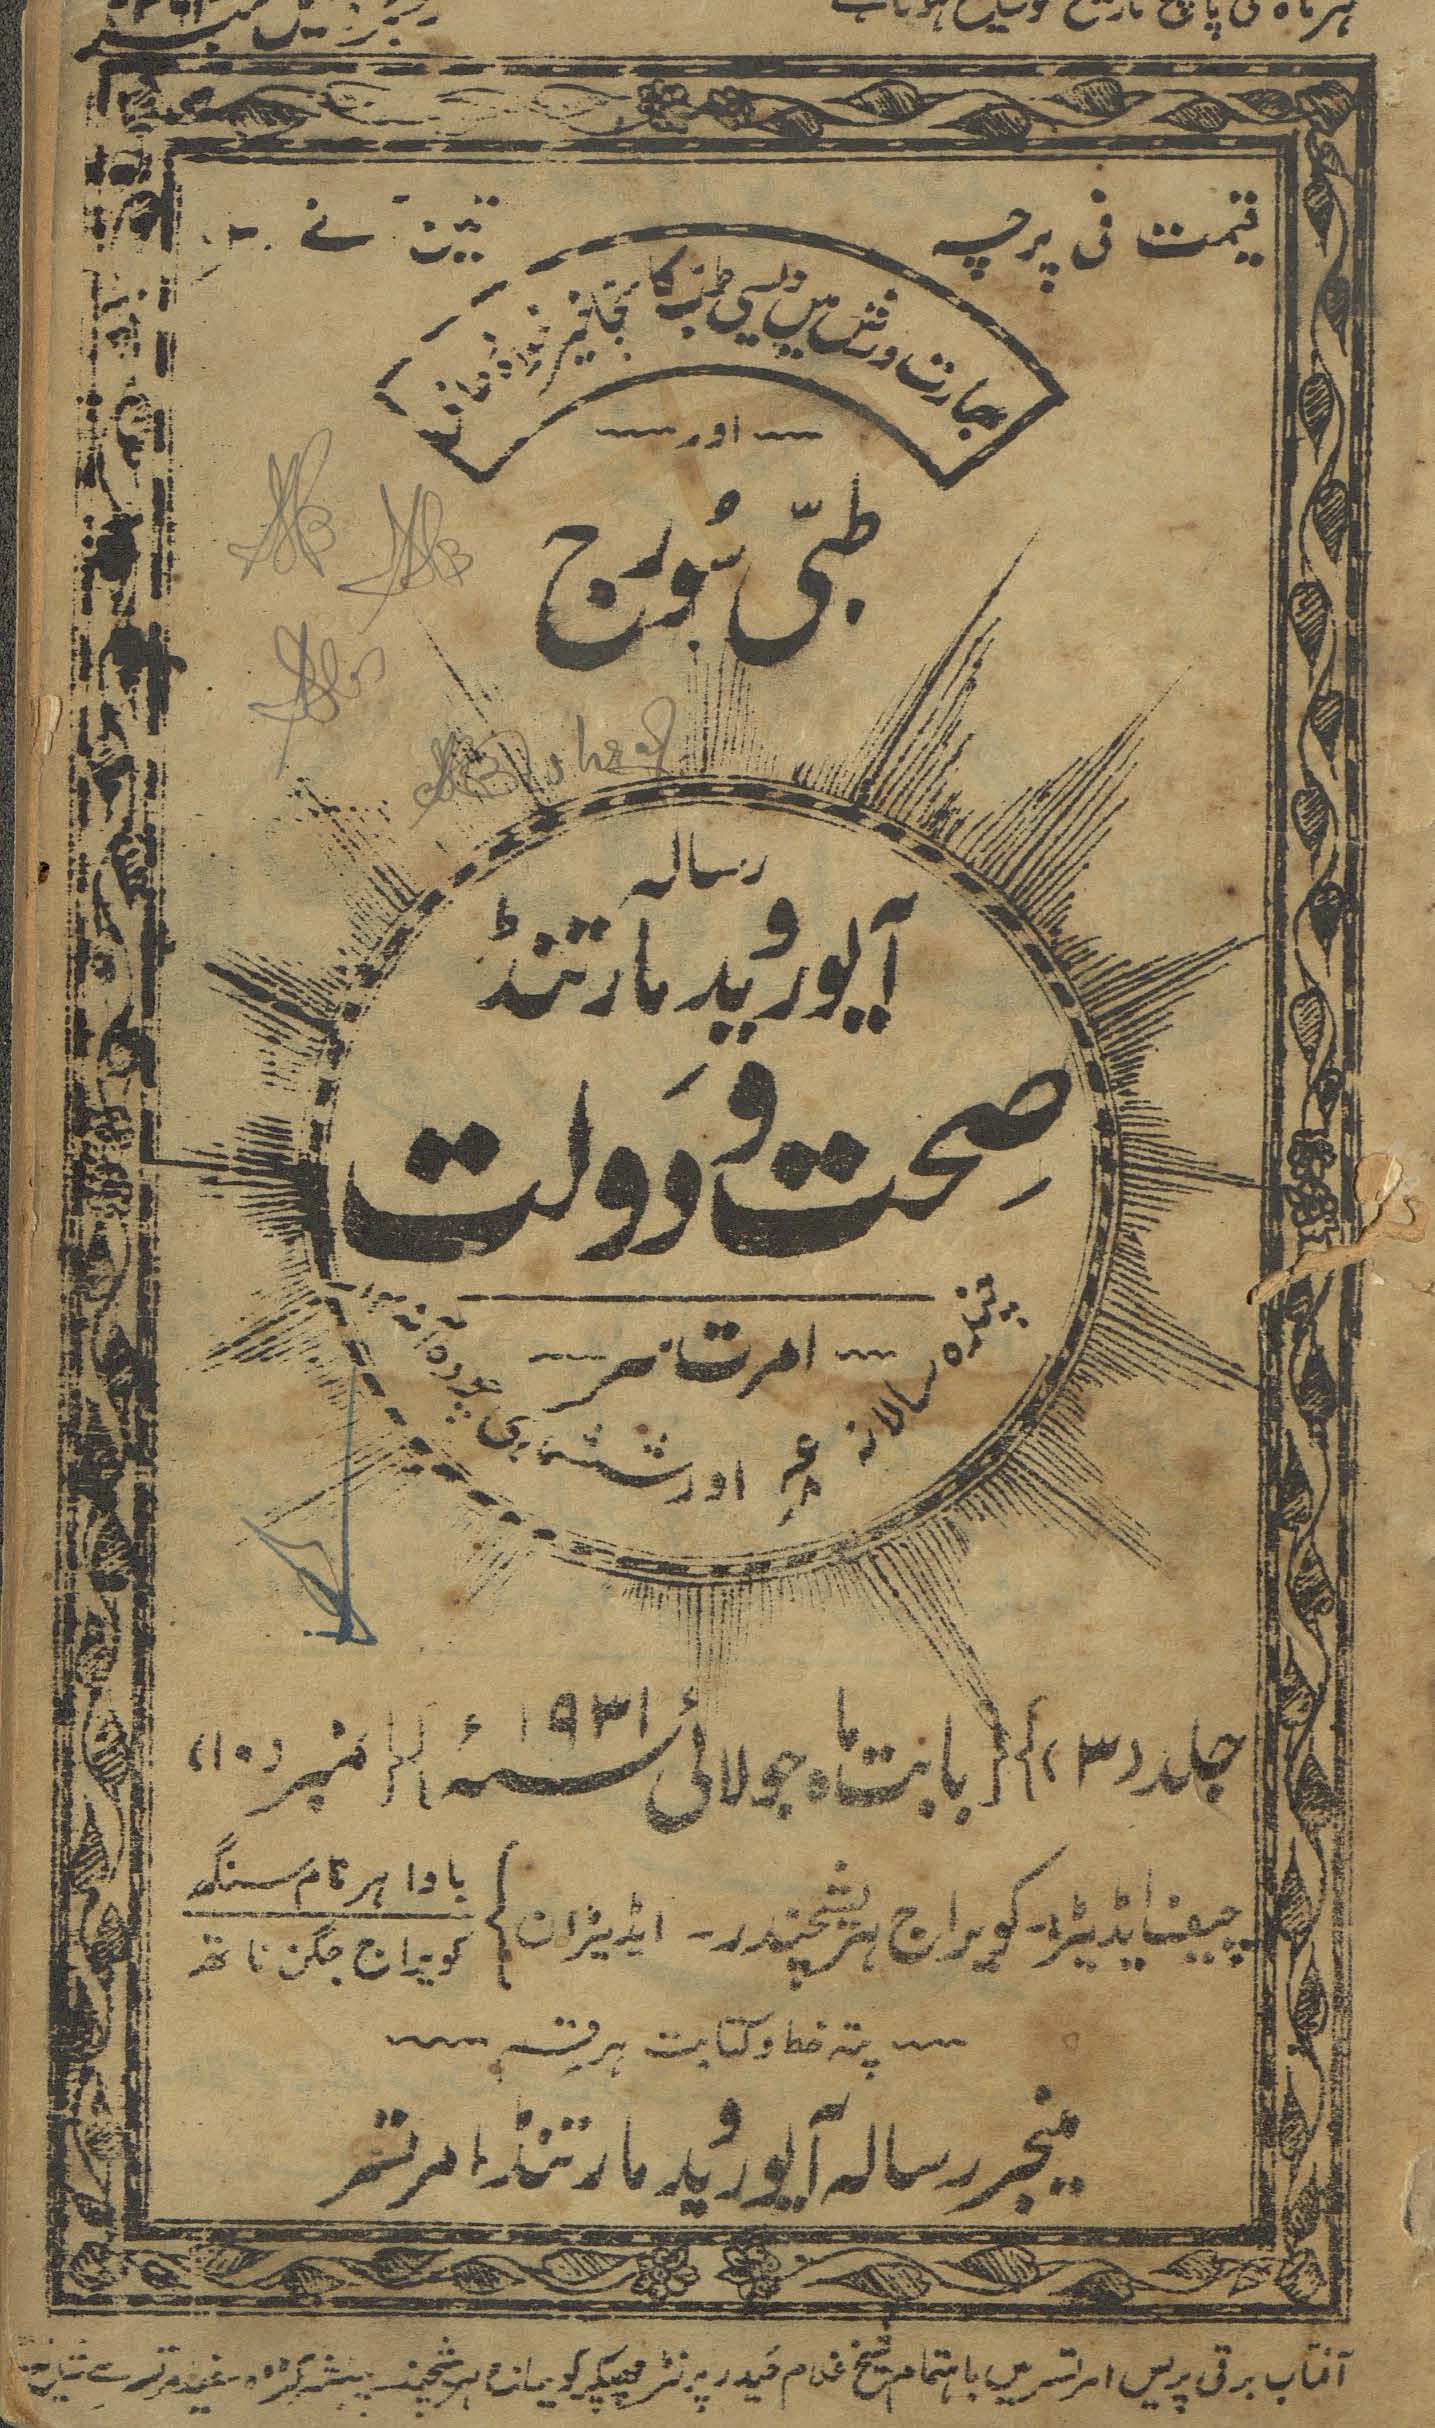 ہر ماہ کی پانچ تاریخ کو شایع ہوتا ہے
رجسٹرڈ ایل نمبر
قیمت فی پرچہ تین آنے ۳؍
بھارت ورش میں دیسی طب کا بیخبر نمائندہ
اور
طبّی سُورج
رسالہ
آیورویدمارتنڈ
صحت و دَولت
امرت سر
چندہ سالانہ اور ششماہی چودہ آنہ
جلد (۳) بابت ماہ جولائی ۱۹۳۱ سنہء نمبر (۱۰)
چیف ایڈیٹر۔ کویراج ہریشچندر۔ ایڈیٹران
باوا ہرنام سنگھ
کویراج جگن ناتھ
پتہ خط و کتابت ہر قسم
مینجر رسالہ آیوروید مارتنڈ امرتسر
آفتاب برقی پریس امرتسر میں باہتمام شیخ غلام حیدر پرنٹر چھپکر کویراج ہریشچند پبلشر کٹڑہ سفید امرتسر سے شایع